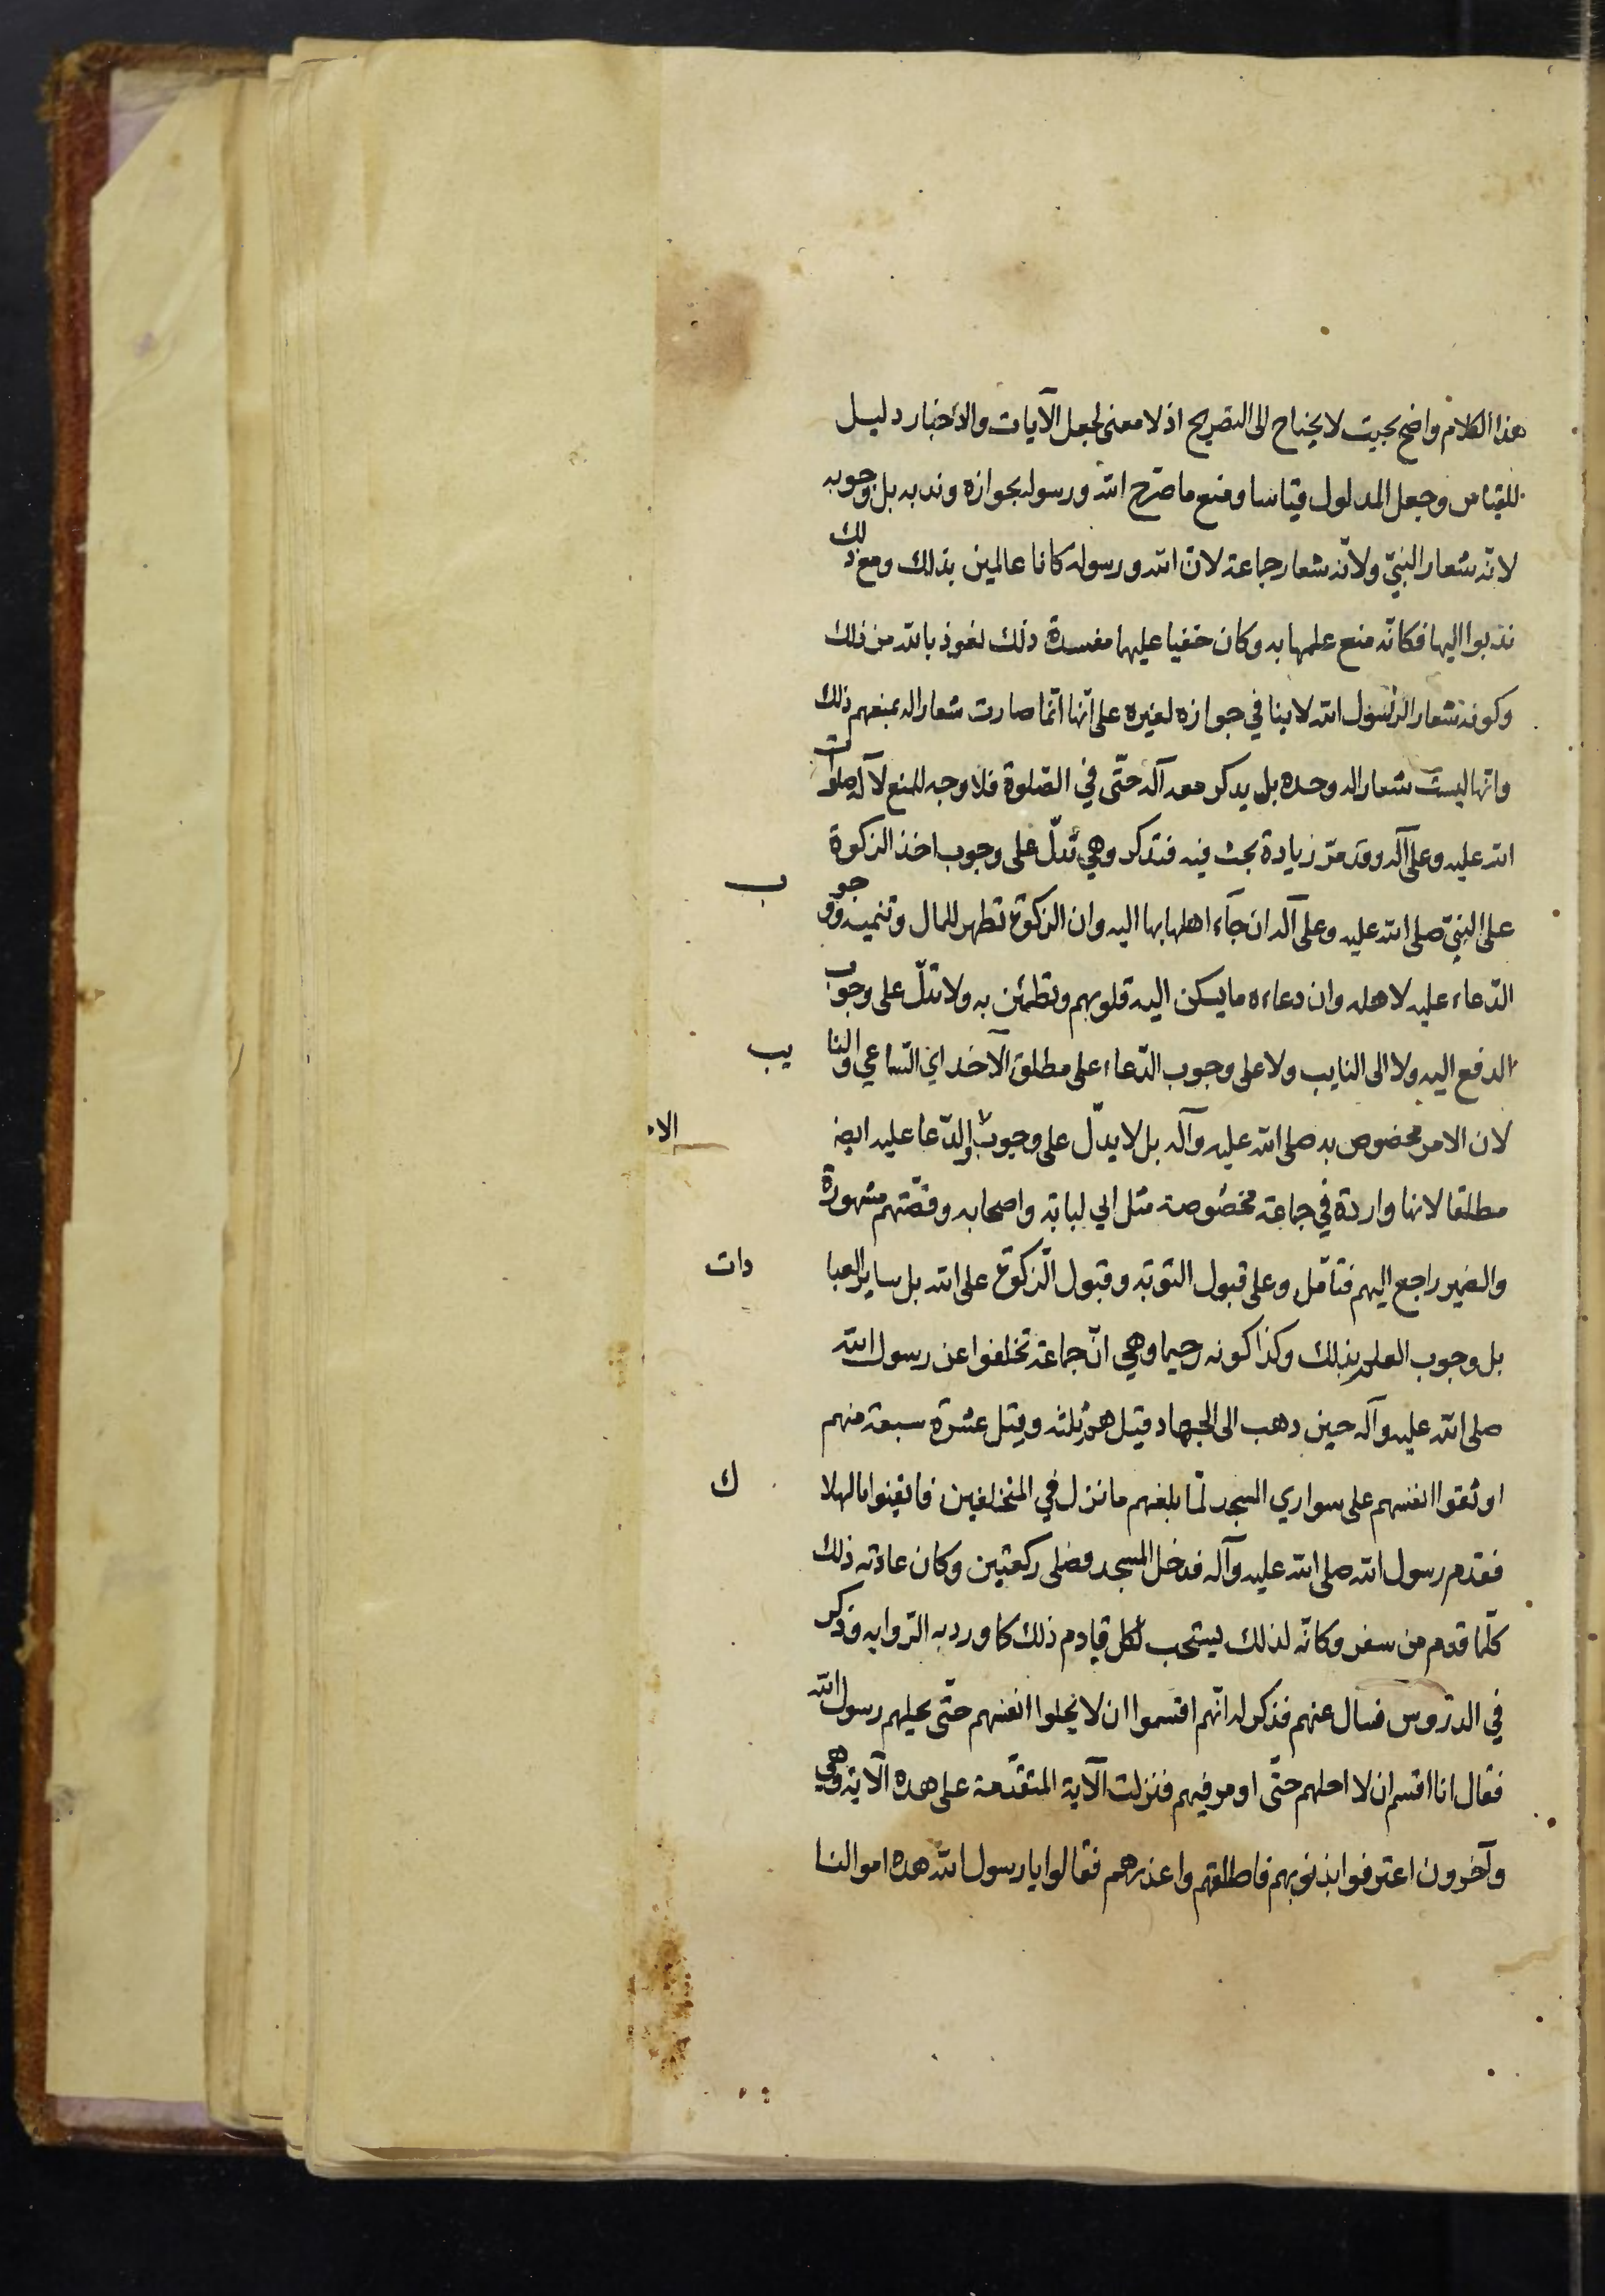 هذا الكلام واضح بحيث لا يحتاج الى التصريح اذ لا معنى لجعل الآيات والاخبار دليل
للقياس وجعل المدلول قياسا ومنع ما صرّح الله ورسوله بجوازه وندبه بل وجوبه
لانّه شعار النبيّ ولانّه شعار جماعة لانّ الله ورسوله كانا عالمين بذلك ومع ذلك
ندبوا اليها فكانّه منع علمهما به وكان خفيا عليهما مفسدة ذلك نعوذ بالله من ذلك
وكونه شعار الرسول الله لا ينافي جوازه لغيره على انّها انّما صارت شعارا له بمنعهم ذلك
وانّها ليست شعارا له وحده بل يذكر معه آله حتّى في الصّلوة فلا وجه للمنع لآله صلوات
الله عليه وعلى آله وقد مرّ زيادة بحث فيه فتذكر وهي تدلّ على وجوب اخذ الزكوة
على النبيّ صلى الله عليه وعلى آله ان جآء اهلها بها اليه وان الزكوة تطهر للمال وتنميه ووجوب
الدّعاء عليه لاهله وان دعاءه ما يسكن اليه قلوبهم وتطمئن به ولا تدلّ على وجوب
الدفع اليه ولا الى النايب ولا على وجوب الدّعاء على مطلق الآخذ اي السّاعي والنايب
لان الامر مخصوص به صلى الله عليه وآله بل لا يدلّ على وجوب الدّعا عليه ايضا الا
مطلقا لانها واردة في جماعة مخصوصة مثل ابي لبابة واصحابه وقصّتهم مشهورة
والضمير راجع اليهم فتامّل وعلى قبول التوبة وقبول الزكوة على الله بل ساير العبادات
بل وجوب العلم بذلك وكذا كونه رحيما وهي انّ جماعة تخلفوا عن رسول الله
صلى الله عليه وآله حين ذهب الى الجهاد قيل هم ثلثة وقيل عشرة سبعة منهم
اوثقوا انفسهم على سواري المسجد لمّا بلغهم ما نزل في المتخلفين فايقنوا بالهلاك
فقدم رسول الله صلى الله عليه وآله فدخل المسجد فصلى ركعتين وكان عادته ذلك
كلّما قدم من سفر وكانّه لذلك يستحب لكل قادم ذلك كما ورد به الرّواية وذكر
في الدّروس فسال عنهم فذكر له انّهم اقسموا ان لا يحلوا انفسهم حتّى يحلهم رسول الله
فقال انا اقسم ان لا احلهم حتّى اومر فيهم فنزلت الآية المتقدّمة على هذه الآية وهي
وآخرون اعترفوا بذنوبهم فاطلقهم واعذرهم فقالوا يا رسول الله هذه اموالنا